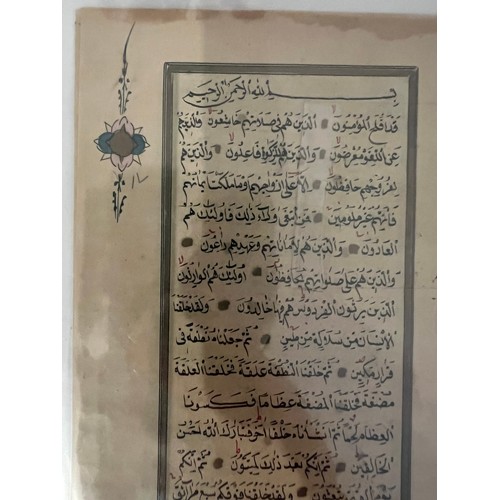 بسم الله الرحمن الرحيم
قد افلح المؤمنون الذين هم فى صلاتهم خاشعون والذين هم
عن اللغو معرضون والذين هم للزكوة فاعلون والذين هم
لفروجهم حافظون الا على ازواجهم او ما ملكت ايمانهم
فانهم غير ملومين فمن ابتغى وراء ذلك فاولئك هم
العادون والذين هم لاماناتهم وعهدهم راعون
والذين هم على صلواتهم يحافظون اولئك هم الوارثون
الذين يرثون الفردوس هم فيها خالدون ولقد خلقنا
الانسان من سلالة من طين ثم جعلناه نطفة فى
قرار مكين ثم خلقنا النطفة علقة فخلقنا العلقة
مضغة فخلقنا المضغة عظاما فكسونا
العظام لحما ثم انشاناه خلقا اخر فتبارك الله احسن
الخالقين ثم انكم بعد ذلك لميتون ثم انكم
يوم القيمة تبعثون ولقد خلقنا فوقكم سبع طرائق
١٧